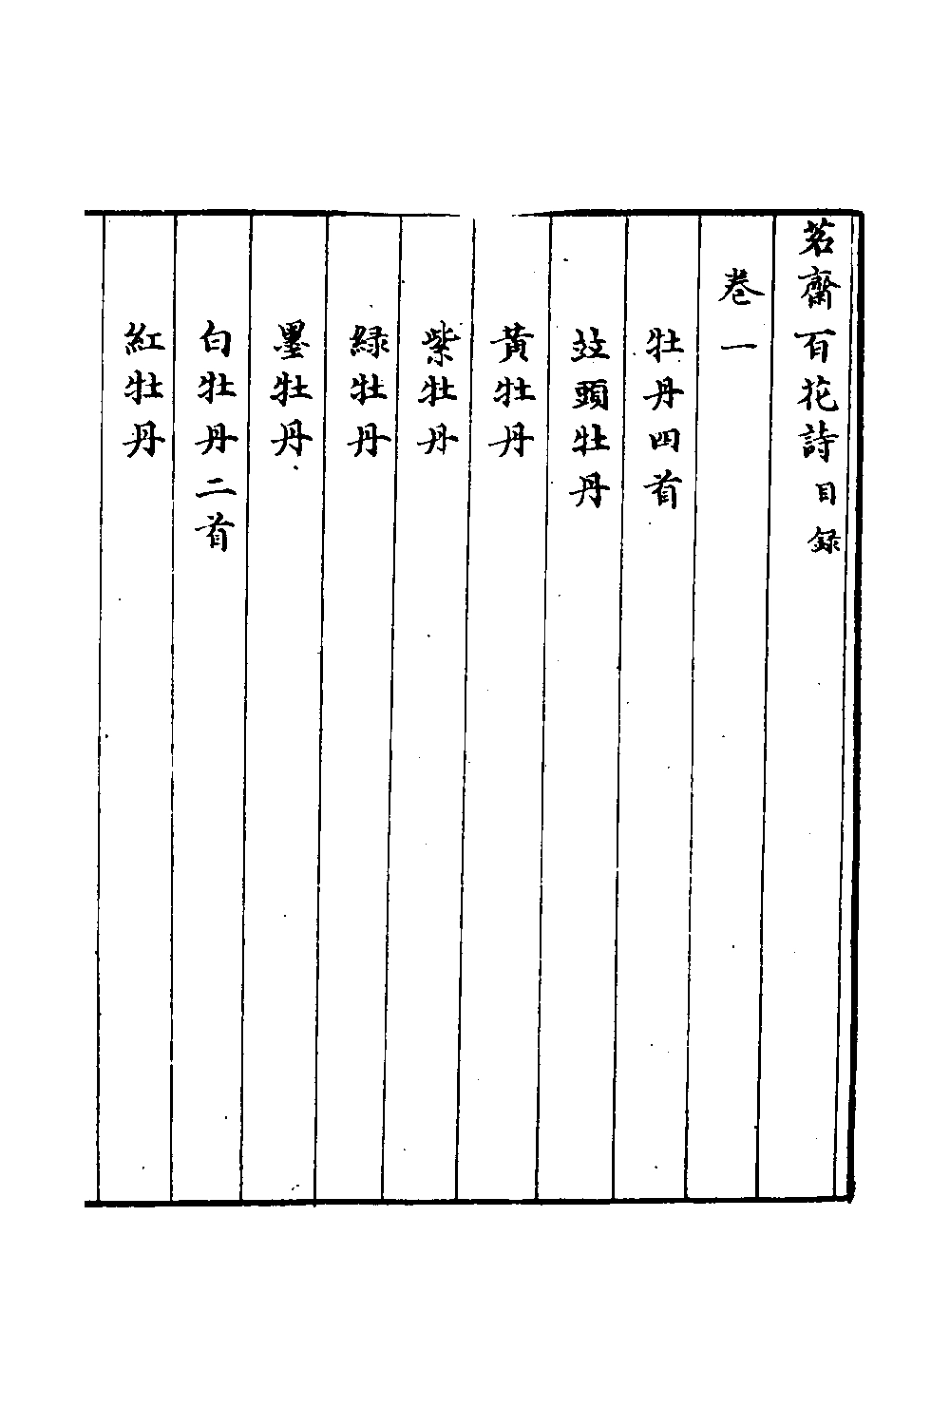 茗齋百花詩目録
卷一
牡丹四首
並頭牡丹
黃牡丹
紫牡丹
緑牡丹
墨牡丹
白牡丹二首
紅牡丹